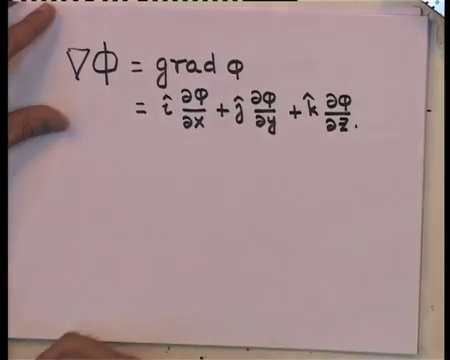 ∇Φ = grad φ
= î ∂φ/∂x + ĵ ∂φ/∂y + k̂ ∂φ/∂z.